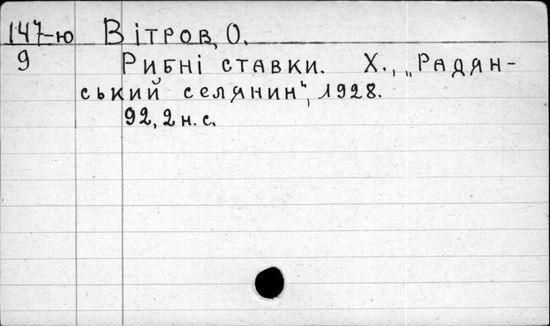 147-ю Вітров, О.
9 Рибні ставки. Х., „Радян-
ський селянин", 1928.
92, 2 н. с.